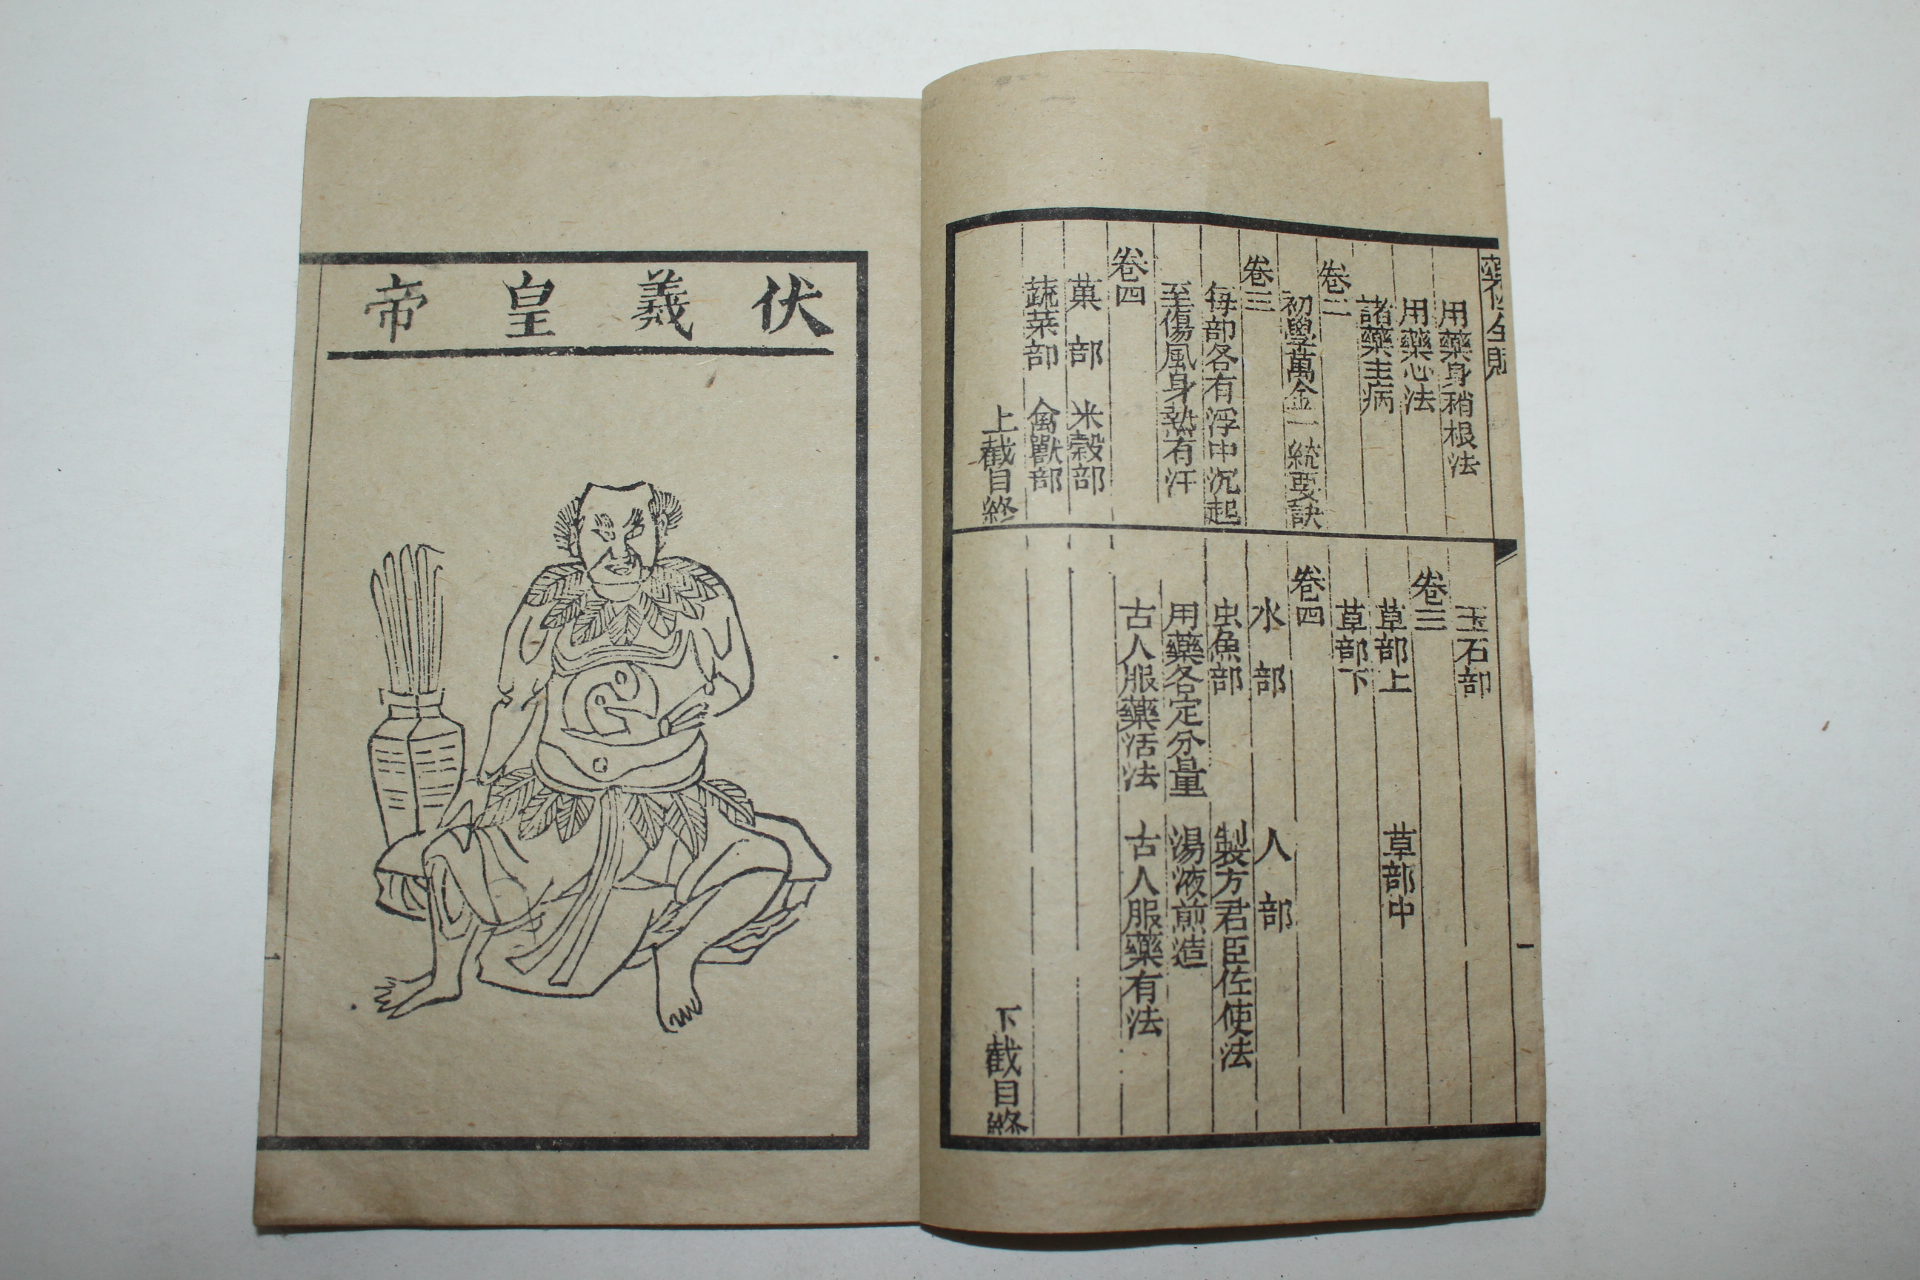 藥性全賦
用藥身稍根法
用藥心法
諸藥主病
卷二
初學萬金一統要訣
卷三
每部各有浮中沉起
至傷風身熱有汗
卷四
菓部 米穀部
蔬菜部 禽獸部
上截目終
玉石部
卷三
草部上 草部中
草部下
卷四
水部 人部
虫魚部 製方君臣佐使法
用藥各定分量 湯液煎造
古人服藥活法 古人服藥有法
下截目終
一
伏羲皇帝